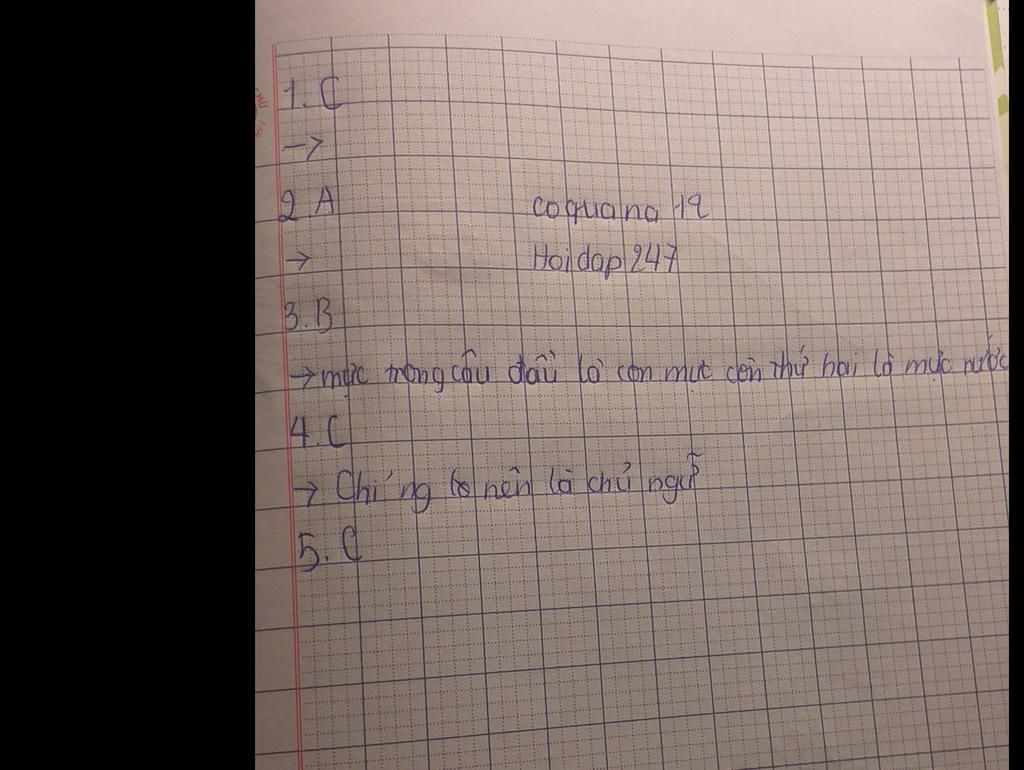 1. C
→
2 A
coquana 19
→
Hoidap 247
3. B
→ mực trong câu đầu là con mực còn thứ hai là mực nước
4. C
→ là chủ ngữ
5. C